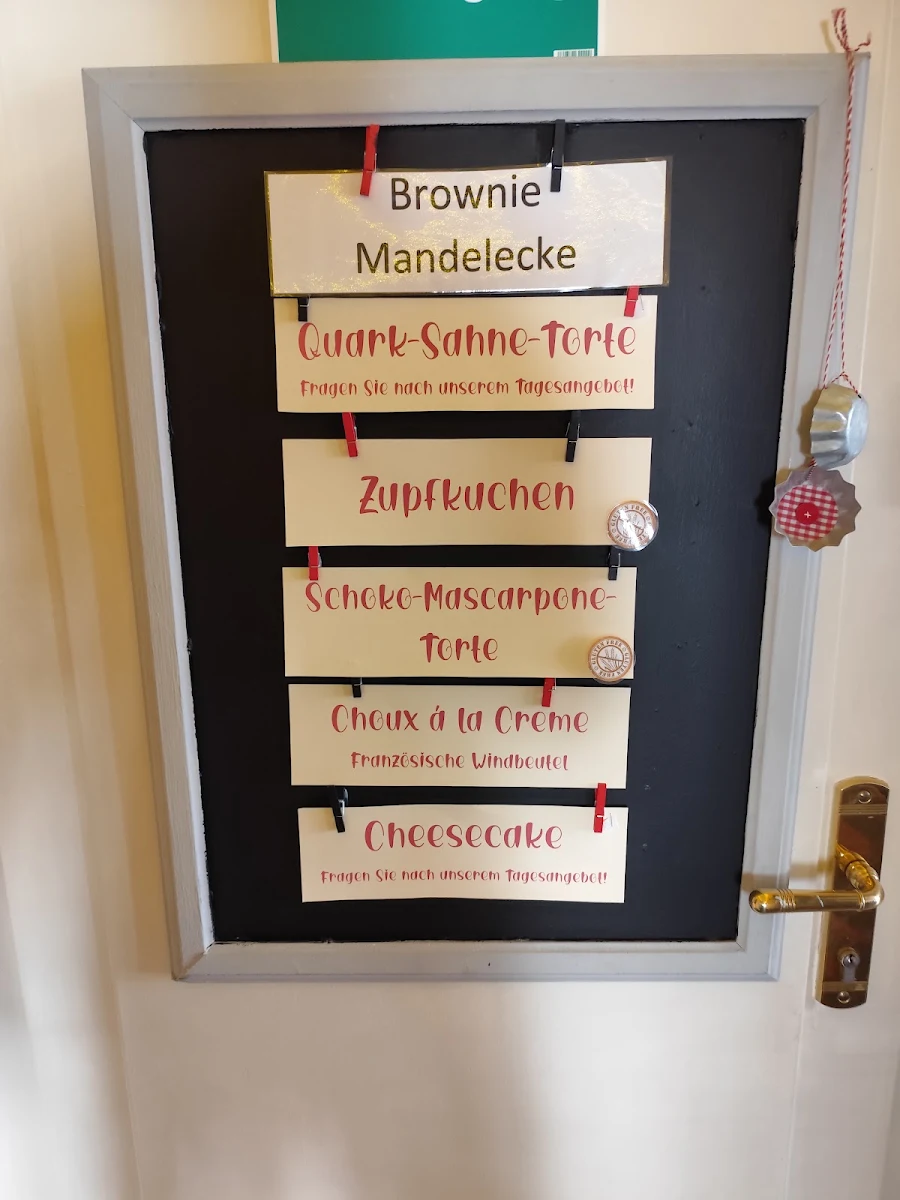 Brownie
Mandelecke
Quark-Sahne-Torte
Fragen Sie nach unserem Tagesangebot!
Zupfkuchen
Schoko-Mascarpone-
Torte
Choux á la Creme
Französische Windbeutel
Cheesecake
Fragen Sie nach unserem Tagesangebot!